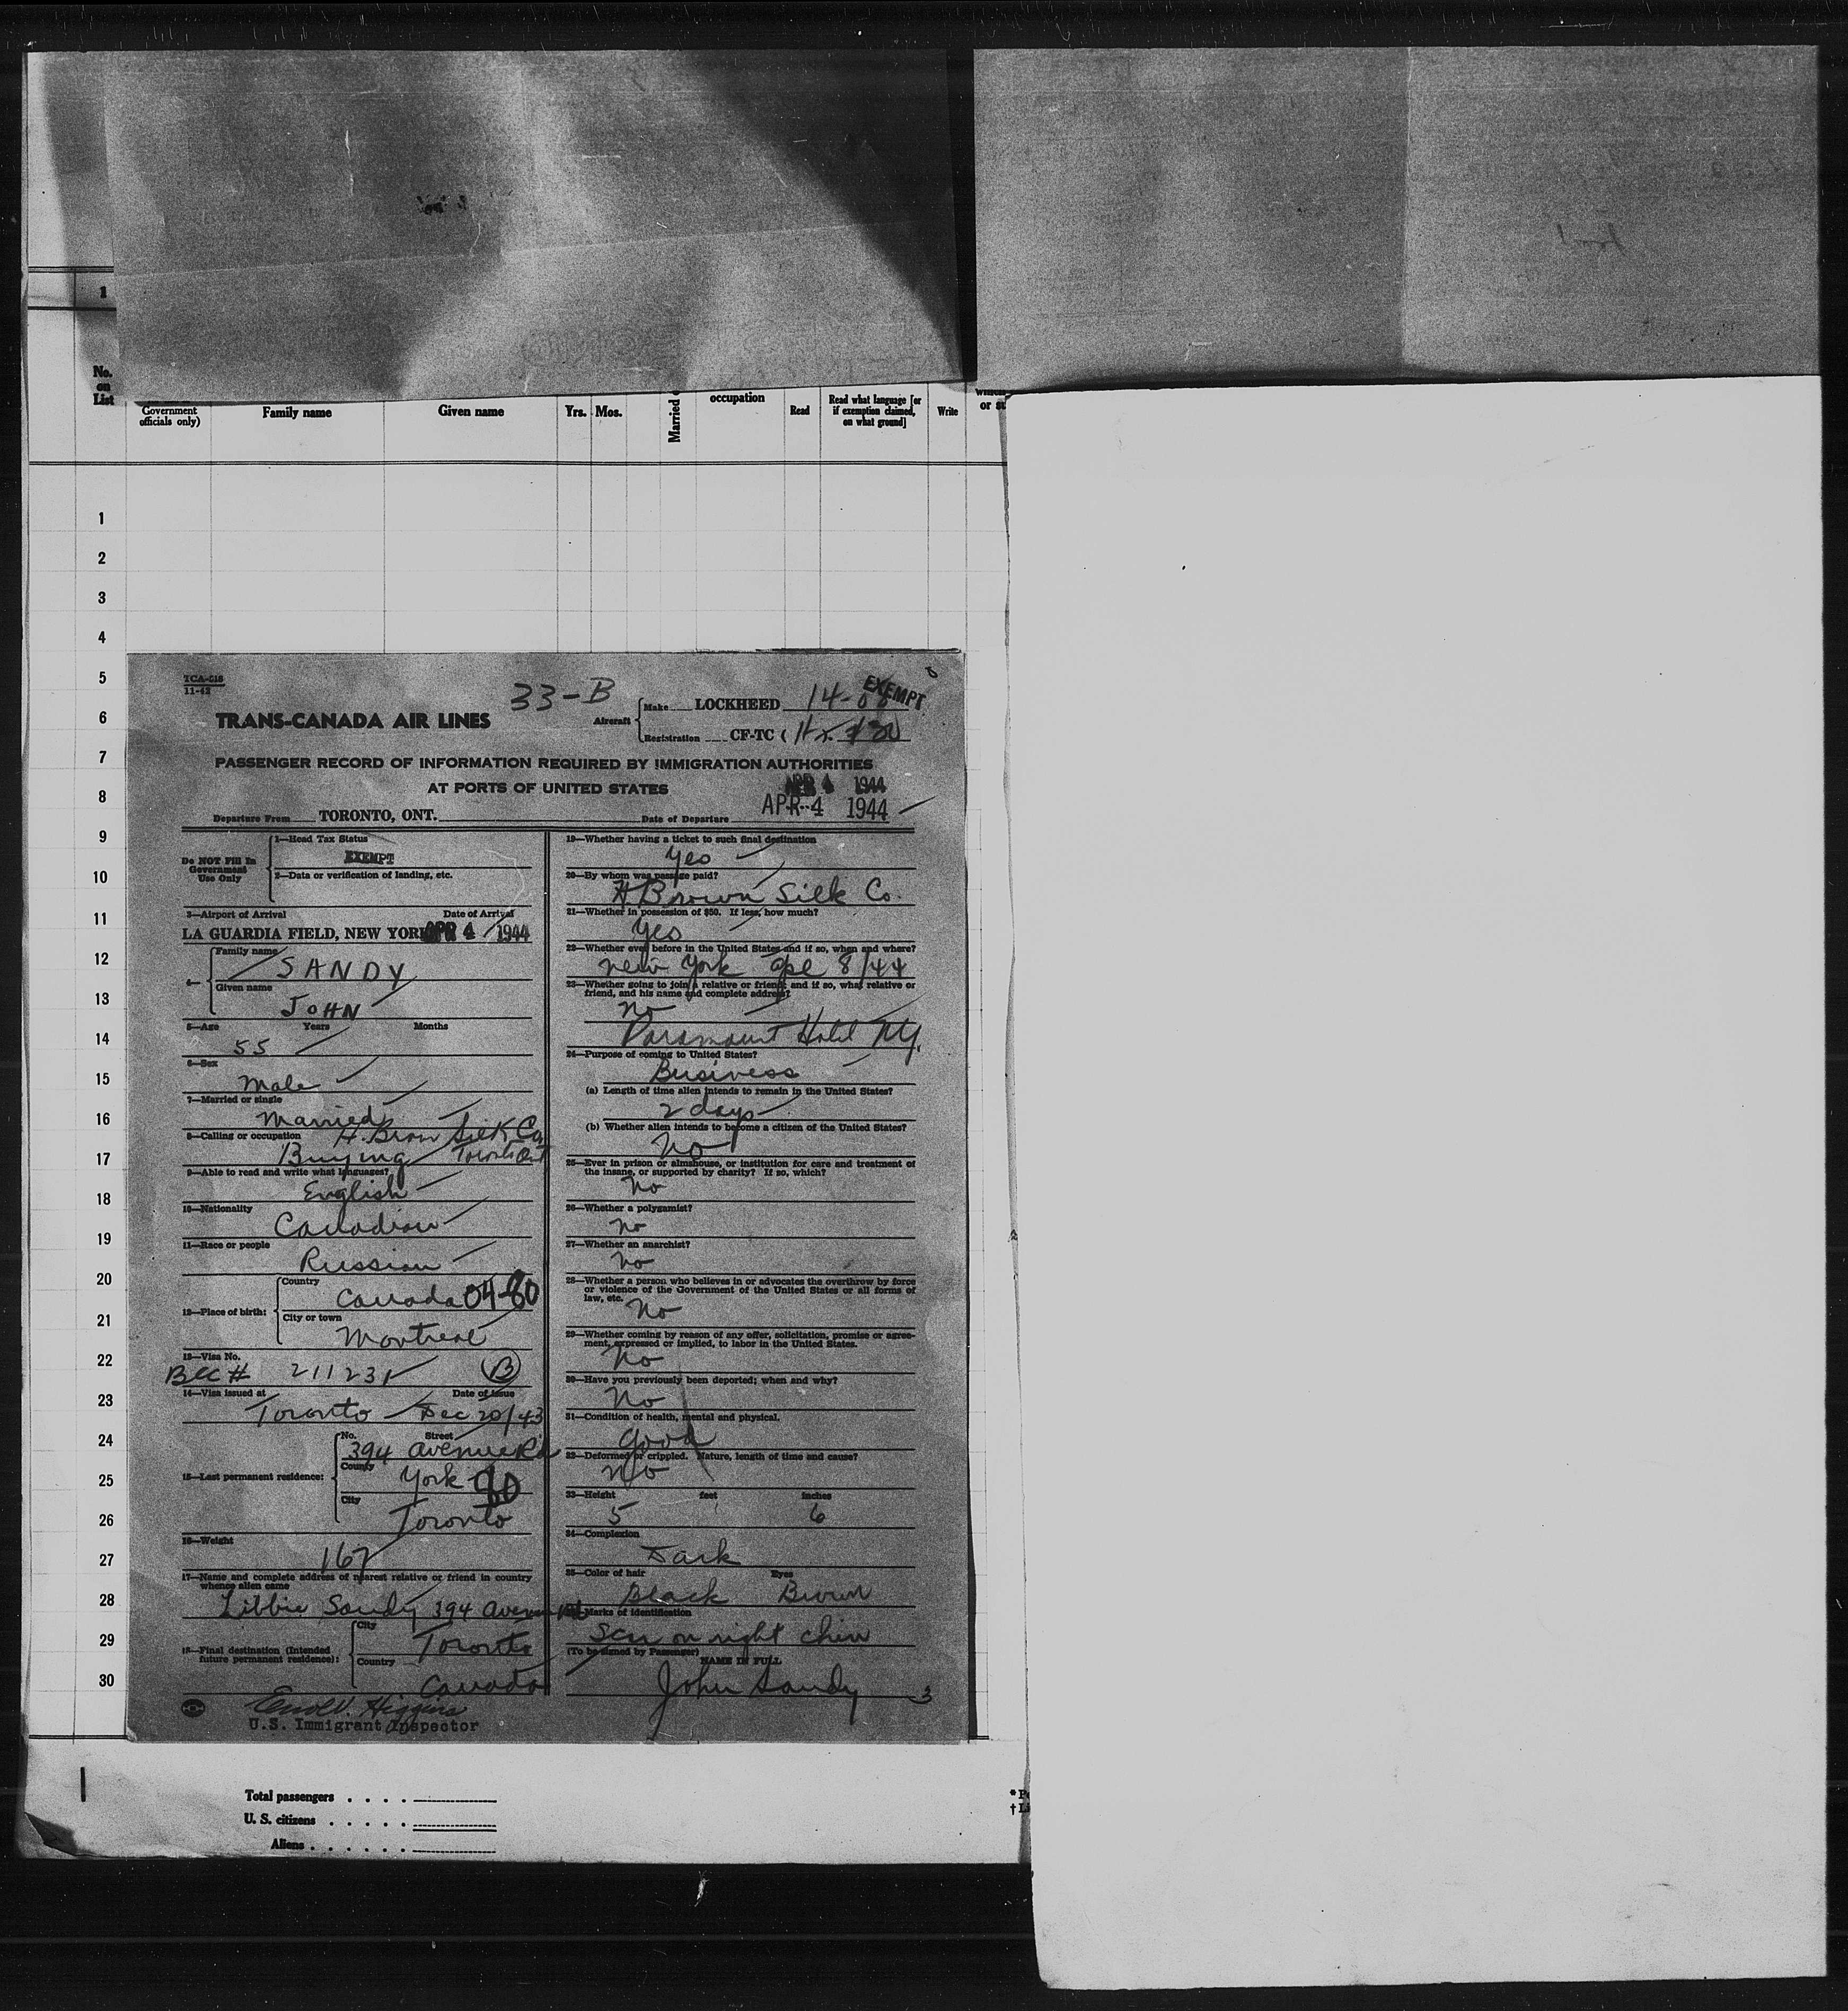 1
No.
on
List
Government
officials only)
Family name
Given name
Yrs. Mos.
Married
occupation
Read
Read what language [or
if exemption claimed,
on what ground]
Write
or
1
2
3
4
5
6
7
8
9
10
11
12
13
14
15
16
17
18
19
20
21
22
23
24
25
26
27
28
29
30
TCA-
11-42
33-B
EXEMPT
TRANS-CANADA AIR LINES
Aircraft
Make LOCKHEED 14-08
Registration CF-TC (
PASSENGER RECORD OF INFORMATION REQUIRED BY IMMIGRATION AUTHORITIES
AT PORTS OF UNITED STATES
APR 4 1944
Departure From TORONTO, ONT. Date of Departure APR-4 1944
Do NOT Fill In
Government
Use Only
1—Head Tax Status
EXEMPT
2—Data or verification of landing, etc.
3—Airport of Arrival Date of Arrival
LA GUARDIA FIELD, NEW YORK APR 4 1944
4—
Family name
SANDY
Given name
JOHN
5—Age Years Months
55
6—Sex
Male
7—Married or single
Married
8—Calling or occupation H. Brown Silk Co.
Buying Toronto Ont
9—Able to read and write what languages?
English
10—Nationality
Canadian
11—Race or people
Russian
12—Place of birth:
Country
Canada 04-80
City or town
Montreal
13—Visa No.
BCC # 211231 B
14—Visa issued at Date of issue
Toronto Dec 20/43
15—Last permanent residence:
No. Street
394 Avenue Rd
County
York
City
Toronto
16—Weight
167
17—Name and complete address of nearest relative or friend in country
whence alien came
Libbie Sandy 394 Avenue Rd
18—Final destination (Intended
future permanent residence):
City
Toronto
Country
Canada
Higgins
U.S. Immigrant Inspector
19—Whether having a ticket to such final destination
Yes
20—By whom was passage paid?
H Brown Silk Co.
21—Whether in possession of $50. If less, how much?
Yes
22—Whether ever before in the United States and if so, when and where?
New York 8/44
23—Whether going to join a relative or friend; and if so, what relative or
friend, and his name and complete address?
No
Paramount Hotel NY.
24—Purpose of coming to United States?
Business
(a) Length of time alien intends to remain in the United States?
2 days
(b) Whether alien intends to become a citizen of the United States?
No
25—Ever in prison or almshouse, or institution for care and treatment of
the insane, or supported by charity? If so, which?
No
26—Whether a polygamist?
No
27—Whether an anarchist?
No
28—Whether a person who believes in or advocates the overthrow by force
or violence of the Government of the United States or all forms of
law, etc.
No
29—Whether coming by reason of any offer, solicitation, promise or agree-
ment, expressed or implied, to labor in the United States.
No
30—Have you previously been deported; when and why?
No
31—Condition of health, mental and physical.
Good
32—Deformed or crippled. Nature, length of time and cause?
No
33—Height feet inches
5 6
34—Complexion
Dark
35—Color of hair Eyes
Black Brown
Marks of identification
Scar on right chin
(To be signed by Passenger)
NAME IN FULL
John Sandy 3
Total passengers . . . .
U. S. citizens . . . . .
Aliens . . . . . .